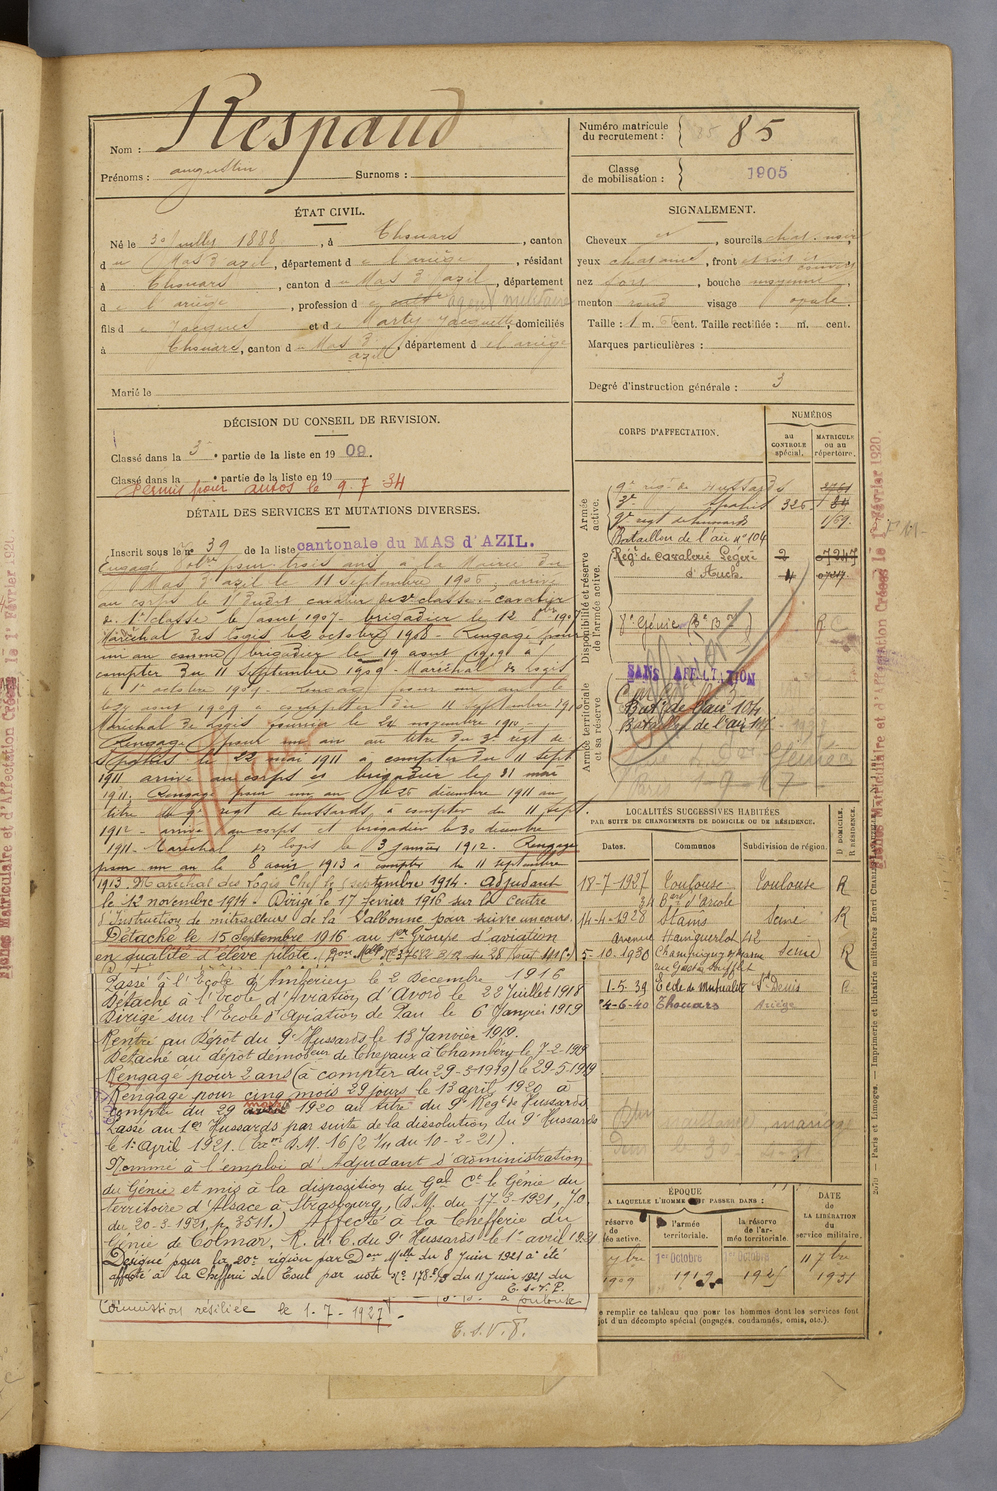 Nom : Respaud
Prénoms : augustin Surnoms :
Numéro matricule du recrutement : 85
Classe de mobilisation : 1905
ÉTAT CIVIL.
Né le 30 Juillet 1888, à Thouars, canton
du Mas d'azil, département de l'ariège, résidant
à Thouars, canton du Mas d'azil, département
de l'ariège, profession de cult agent militaire
fils de Jacques et de Marty Jacquette, domiciliés
à Thouars, canton du Mas d'azil, département de l'ariège
Marié le
SIGNALEMENT.
Cheveux et, sourcils chat. noir
yeux chatains, front étroit et
nez fort, bouche moyenne
menton rond visage ovale.
Taille : 1 m. 66 cent. Taille rectifiée : m. cent.
Marques particulières :
Degré d'instruction générale : 3
DÉCISION DU CONSEIL DE REVISION.
Classé dans la 3e partie de la liste en 1909.
Classé dans la e partie de la liste en 19
Permis pour autos le 9.7.34
DÉTAIL DES SERVICES ET MUTATIONS DIVERSES.
Inscrit sous le n° 39 de la liste cantonale du MAS d'AZIL.
Engagé Volre pour trois ans à la Mairie du
Mas d'azil le 11 Septembre 1906, arrivé
au corps le dudit cavalier de 2e classe. - cavalier
de 1e classe le août 1907 - brigadier le 12 8bre 1907
Maréchal des logis le 2 octobre 1908 - Rengagé pour
un an comme brigadier le 19 août 1909 à
compter du 11 Septembre 1909 - Maréchal des Logis
le 1er octobre 1909. Rengagé pour un an le
août 1909 à compter du 11 septembre 1910
Maréchal des logis fourrier le 24 novembre 1910 -
Rengagé pour un an au titre du 3e régt de
Spahis le 22 mai 1911 à compter du 11 Sept
1911 arrivé au corps et brigadier le 31 mai
1911. Rengagé pour un an le 26 décembre 1911 au
titre du 9e régt de hussards à compter du 11 Sept.
1912 - arrivé au corps et brigadier le 30 décembre
1911. Maréchal des logis le 3 janvier 1912. Rengagé
pour un an le 8 août 1913 à compter du 11 septembre
1913. Maréchal des Logis Chef le septembre 1914. Adjudant
le 12 novembre 1914. Dirigé le 17 février 1916 sur le Centre
d'Instruction de mitrailleurs de la Valbonne pour suivre un cours.
Détaché le 15 Septembre 1916 au 1er Groupe d'aviation
en qualité d'élève pilote.
Passé à l'École d'Ambérieu le 2 Décembre 1916
Détaché à l'École d'Aviation d'Avord le 22 Juillet 1918
Dirigé sur l'École d'Aviation de Pau le 6 Janvier 1919
Rentré au Dépôt du 9e Hussards le 13 Janvier 1919.
Détaché au dépôt démobeur de Chevaux à Chambéry le 7-2-1919
Rengagé pour 2 ans (à compter du 29-3-1919) le 29-5-1919
Rengagé pour cinq mois 29 jours le 13 avril 1920 à
compter du 29 mars 1920 au titre du 9e Régt de Hussards
Passé au 1er Hussards par suite de la dissolution du 9e Hussards
le 1er Avril 1921. (Circre D.M. 16/2 1/4 du 10-2-21).
Nommé à l'emploi d'Adjudant d'administration
du Génie et mis à la disposition du Gal Ct le Génie du
territoire d'Alsace à Strasbourg, (D.M. du 17-3-1921, J.O.
du 20-3-1921, p. 3511.) Affecté à la Chefferie du
Génie de Colmar. R. d. C. du 9e Hussards le 1er avril 1921
Désigné pour la 20e région par Don Mlle du 8 Juin 1921 a été
affecté à la Chefferie de Toul par note N° 178-3/S du 11 Juin 1921 du
E.S.V.P.
Commission résiliée le 1-7-1927.
T.S.V.P.
CORPS D'AFFECTATION.
NUMÉROS
au CONTROLE spécial.
MATRICULE ou au répertoire.
Armée active.
9e régt de Hussards
3e Spahis 326
9e régt de hussards
Bataillon de l'air n° 104
Disponibilité et réserve de l'armée active.
Régt de cavalerie légère 2 07247
d'Auch. 4
8e Génie
SANS AFFECTATION
Armée territoriale et sa réserve
Batn de l'air 104
Bataillon de l'air
LOCALITÉS SUCCESSIVES HABITÉES
PAR SUITE DE CHANGEMENTS DE DOMICILE OU DE RÉSIDENCE.
Dates. Communes Subdivision de région. D DOMICILE. R RÉSIDENCE.
18-7-1927 Toulouse Toulouse R
34 Bard d'Arcole
14-4-1928 Stains Seine R
avenue Hainguerlot 42
5-10-1930 Champigny s/ Marne Seine R
1-5-39 St Denis
4-6-40 Thouars Ariège
ÉPOQUE
A LAQUELLE L'HOMME DOIT PASSER DANS :
réserve de armée active.
l'armée territoriale.
la réserve de l'armée territoriale.
DATE de LA LIBÉRATION du service militaire.
1er Octobre 1er Octobre 11 7bre
1909 1919 1925 1931
e remplir ce tableau que pour les hommes dont les services font
jet d'un décompte spécial (engagés, condamnés, omis, etc.).
Fiches Matriculaire et d'Affectation Créées le 1er Février 1920.
Paris et Limoges. — Imprimerie et librairie militaires Henri Charles-Lavauzelle